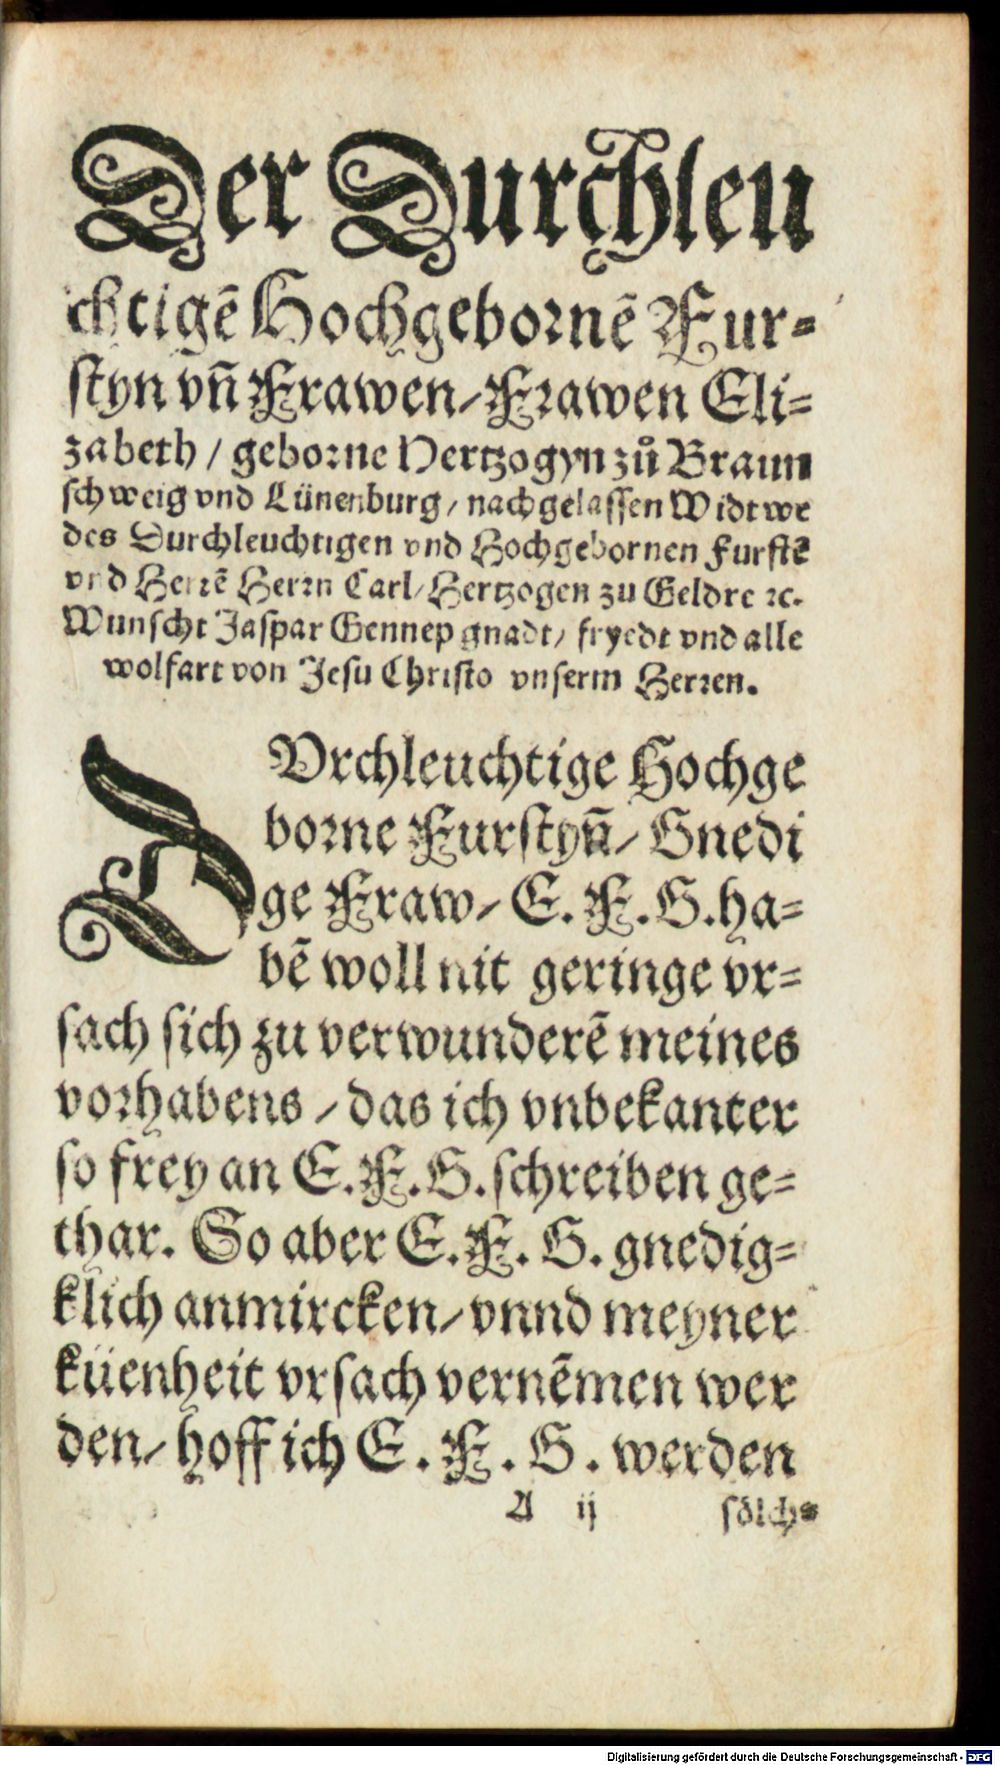 Der Durchleu
chtigẽ Hochgebornẽ Fur⸗
styn vñ Frawen/Frawen Eli⸗
zabeth / geborne Hertzogyn zů Braun
schweig vnd Lünenburg/ nachgelassen Widtwe
des Durchleuchtigen vnd Hochgebornen Furstẽ
vnd Herrẽ Herrn Carl/Hertzogen zu Geldre ꝛc.
Wunscht Jaspar Gennep gnadt/ fryedt vnd alle
wolfart von Jesu Christo vnserm Herren.
DVrchleuchtige Hochge
borne Furstyñ/ Gnedi
ge Fraw/ E. F. G. ha⸗
bẽ woll nit geringe vr⸗
sach sich zu verwunderẽ meines
vorhabens /das ich vnbekanter
so frey an E. F. G. schreiben ge⸗
thar. So aber E. F. G. gnedig⸗
klich anmircken/vnnd meyner
küenheit vrsach vernẽmen wer
den/ hoff ich E. F. G. werden
A ij sölch⸗
Digitalisierung gefördert durch die Deutsche Forschungsgemeinschaft - DFG